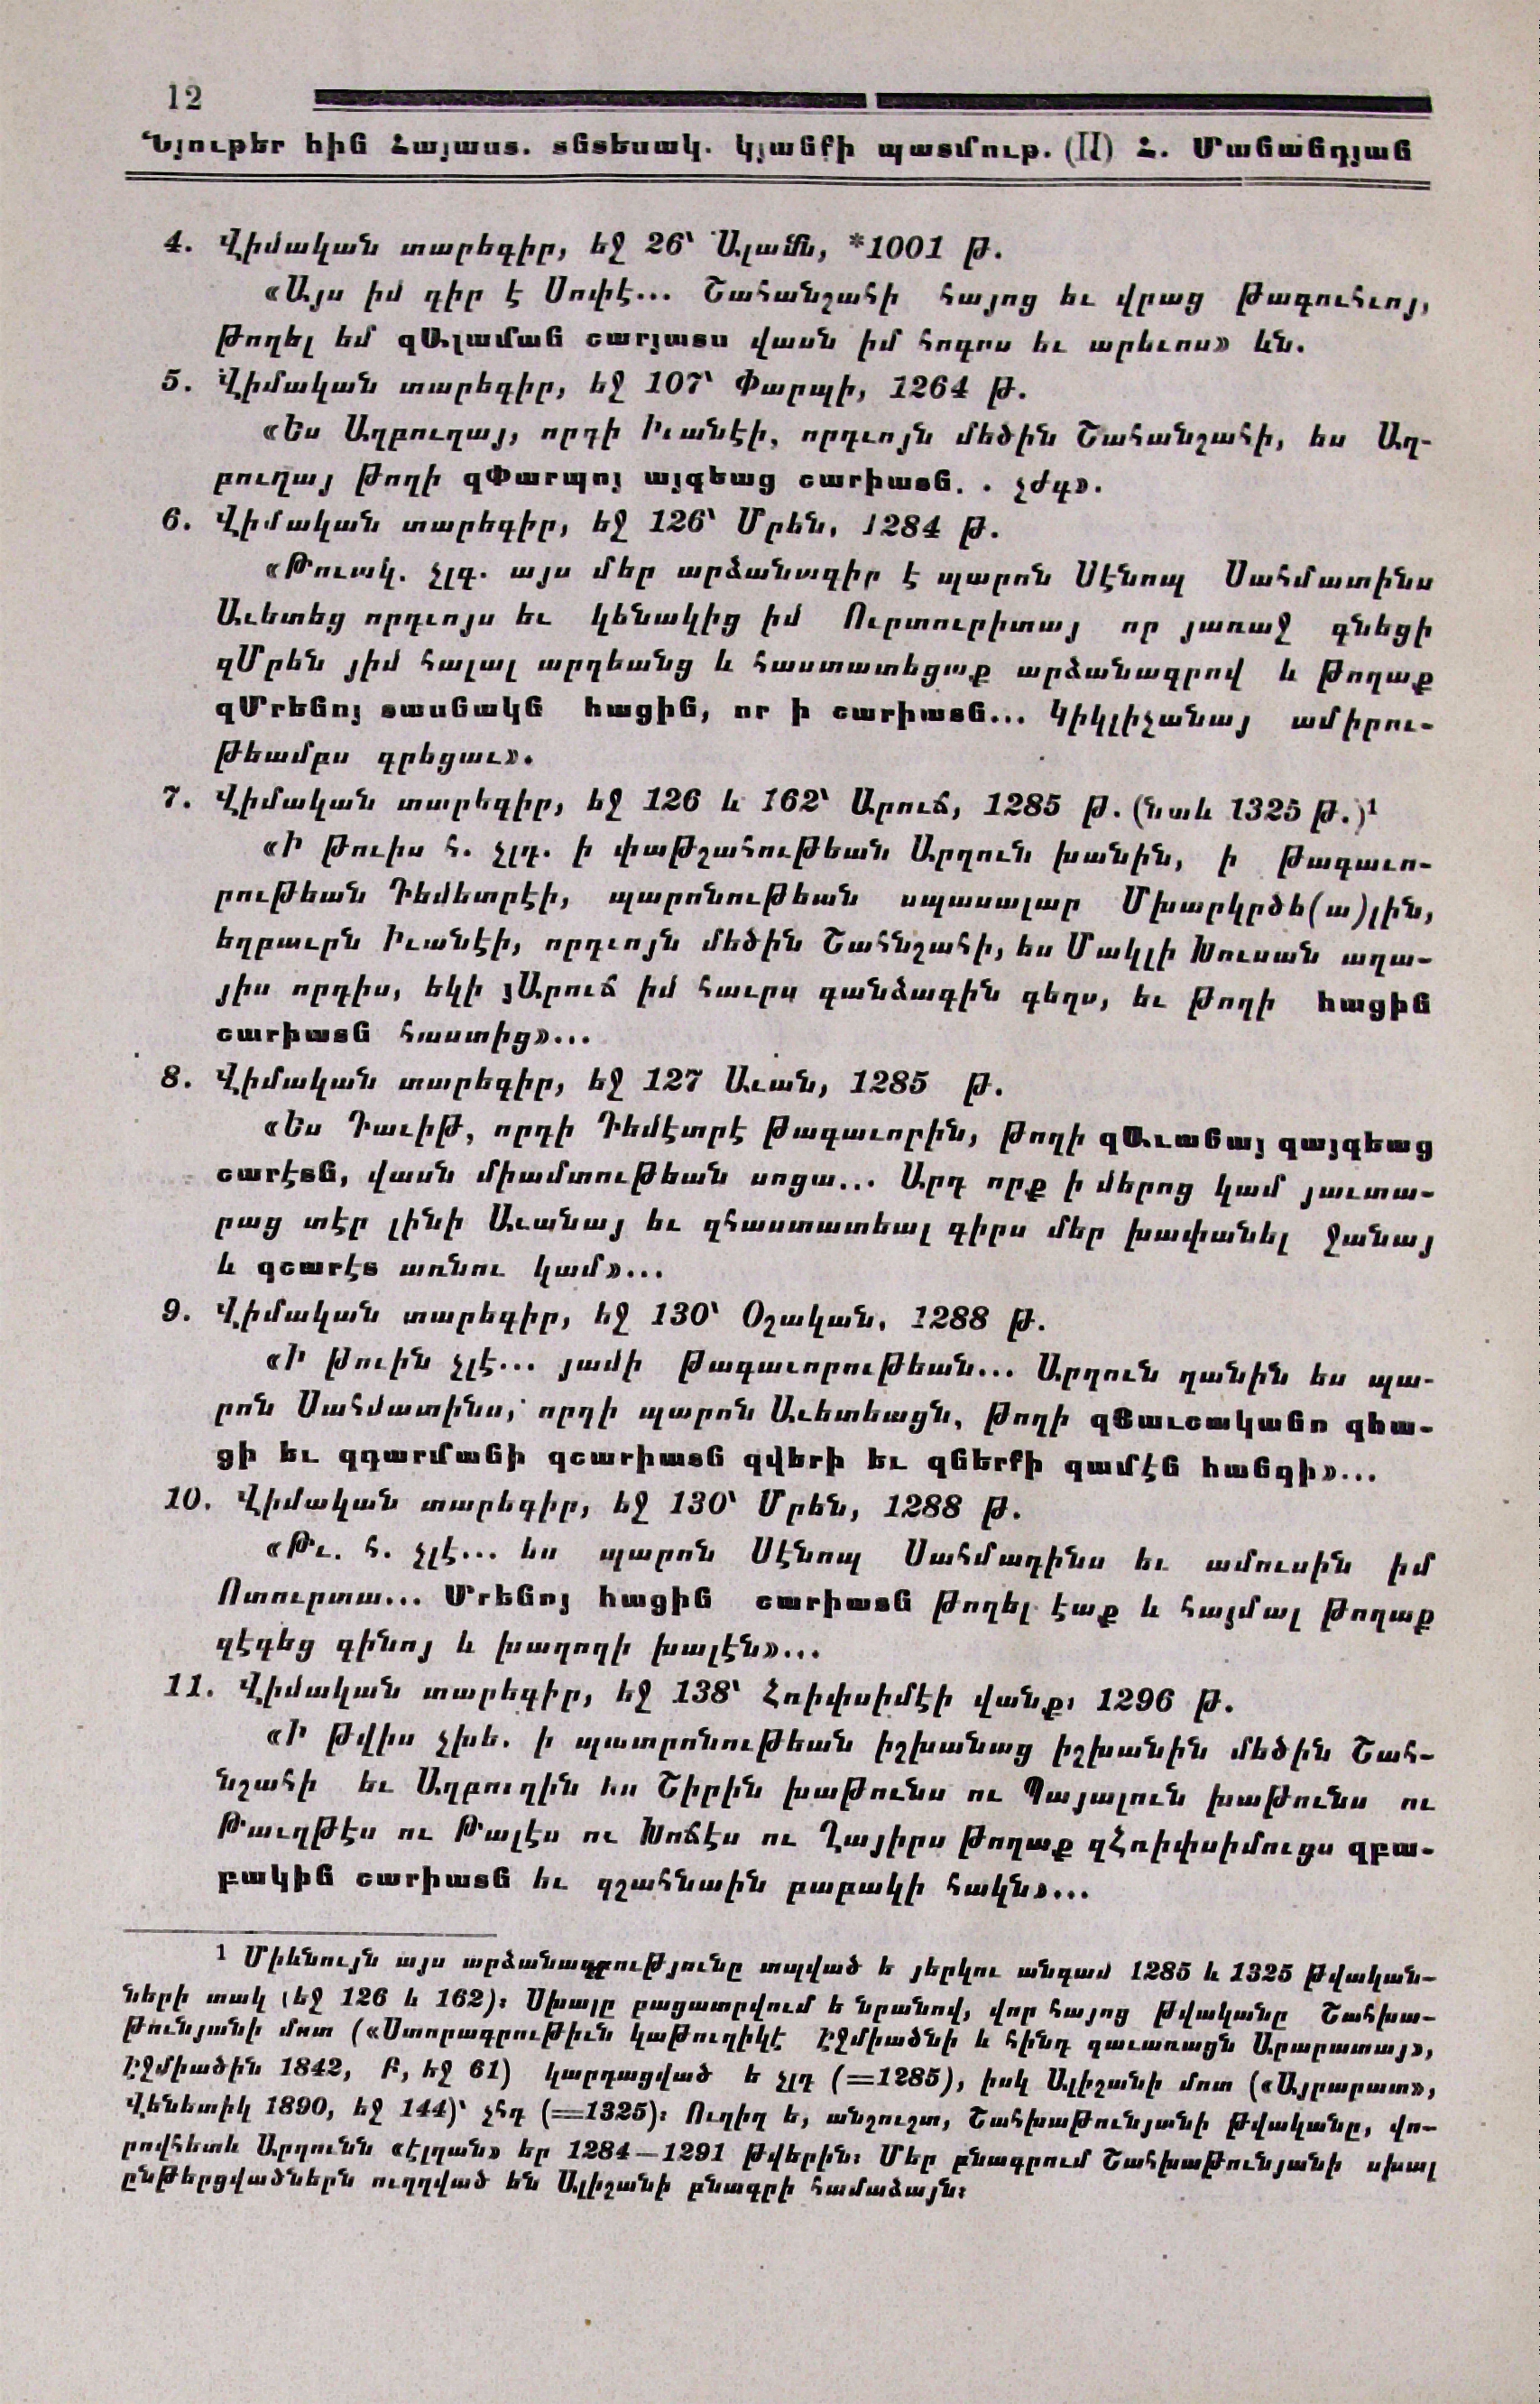 12
Նյութեր հին Հայաստ. տնտեսակ. կյանքի պատմութ. (II) Հ. Մանանդյան
4. Վիմական տարեգիր, եջ 26՝ Ալամն, *1001 թ.
«Այս իմ գիր է Սոփէ... Շահանշահի հայոց եւ վրաց թագուհւոյ,
թողել եմ զԱլաման շարյատս վասն իմ հոգոս եւ արեւոս» ևն.
5. Վիմական տարեգիր, եջ 107՝ Փարպի, 1264 թ.
«Ես Աղբուղայ, որդի Իւանէի, որդւոյն մեծին Շահանշահի, ես Աղ-
բուղայ թողի զՓարպոյ այգեաց շարիատն. . չժգ».
6. Վիմական տարեգիր, եջ 126՝ Մրեն, 1284 թ.
«Թուակ. չլգ. այս մեր արձանագիր է պարոն Սէնոպ Սահմատինս
Աւետեց որդւոյս եւ կենակից իմ Ուրտուրիտայ որ յառաջ գնեցի
զՄրեն յիմ հալալ արդեանց և հաստատեցաք արձանագրով և թողաք
զՄրենոյ տասնակն հացին, որ ի շարիատն... Կիկլիչանայ ամիրու-
թեամբս գրեցաւ».
7. Վիմական տարեգիր, եջ 126 և 162՝ Արուճ, 1285 թ. (նաև 1325 թ.)¹
«Ի թուիս հ. չլդ. ի փաթշահութեան Արղուն խանին, ի թագաւո-
րութեան Դեմետրէի, պարոնութեան սպասալար Մխարկրծե(ա)լին,
եղբաւրն Իւանէի, որդւոյն մեծին Շահնշահի, ես Մակլի Խուսան աղա-
յիս որդիս, եկի յԱրուճ իմ հաւրս գանձագին գեղս, եւ թողի հացին
շարիատն հաստից»...
8. Վիմական տարեգիր, եջ 127 Աւան, 1285 թ.
«Ես Դաւիթ, որդի Դեմէտրէ թագաւորին, թողի զԱւանայ զայգեաց
շարէտն, վասն միամտութեան սոցա... Արդ որք ի մերոց կամ յաւտա-
րաց տէր լինի Աւանայ եւ զհաստատեալ գիրս մեր խափանել ջանայ
և զշարէտ առնու կամ»...
9. Վիմական տարեգիր, եջ 130՝ Օշական, 1288 թ.
«Ի թուին չլէ... յամի թագաւորութեան... Արղուն ղանին ես պա-
րոն Սահմատինս, որդի պարոն Աւետեացն, թողի զՅաւշականո զհա-
ցի եւ զդարմանի զշարիատն զվերի եւ զներքի զամէն հանգի»...
10. Վիմական տարեգիր, եջ 130՝ Մրեն, 1288 թ.
«Թւ. հ. չլէ... ես պարոն Սէնոպ Սահմադինս եւ ամուսին իմ
Ոտուրտա... Մրենոյ հացին շարիատն թողել էաք և հայմալ թողաք
զէգեց գինոյ և խաղողի խալէն»...
11. Վիմական տարեգիր, եջ 138՝ Հռիփսիմէի վանք, 1296 թ.
«Ի թվիս չխե. ի պատրոնութեան իշխանաց իշխանին մեծին Շահ-
նշահի եւ Աղբուղին ես Շիրին խաթունս ու Պայալուն խաթունս ու
Թաւղթէս ու Թալէս ու Խոճէս ու Ղայիրս թողաք զՀռիփսիմուցս զբա-
բակին շարիատն եւ զշահնաին բաբակի հակն»...
¹ Միևնույն այս արձանագրությունը տպված ե յերկու անգամ 1285 և 1325 թվական-
ների տակ (եջ 126 և 162)։ Սխալը բացատրվում ե նրանով, վոր հայոց թվականը Շահխա-
թունյանի մոտ («Ստորագրութիւն կաթուղիկէ Էջմիածնի և հինգ գաւառացն Արարատայ»,
Էջմիածին 1842, Բ, եջ 61) կարդացված ե չլդ (=1285), իսկ Ալիշանի մոտ («Այրարատ»,
Վենետիկ 1890, եջ 144)՝ չհդ (=1325)։ Ուղիղ ե, անշուշտ, Շահխաթունյանի թվականը, վո-
րովհետև Արղունն «էլղան» եր 1284—1291 թվերին։ Մեր բնագրում Շահխաթունյանի սխալ
ընթերցվածներն ուղղված են Ալիշանի բնագրի համաձայն։